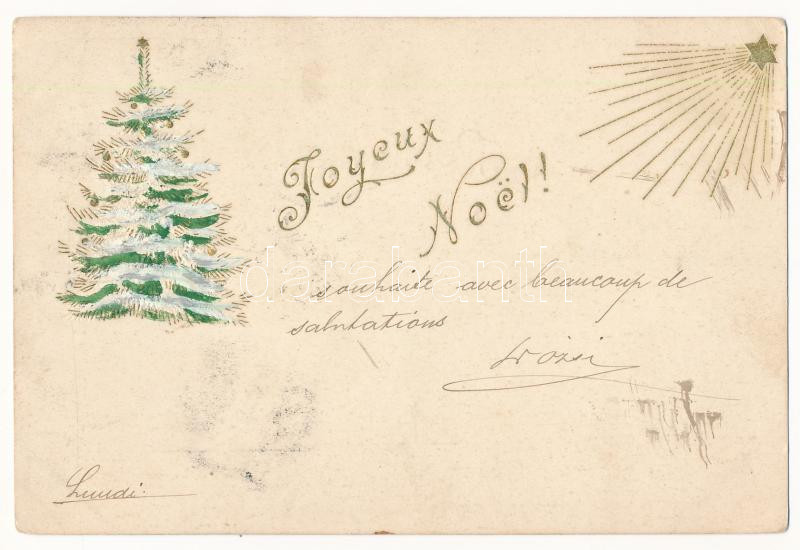 Joyeux
Noël!
souhaite avec beaucoup de
salutations
Lundi.
darabanth